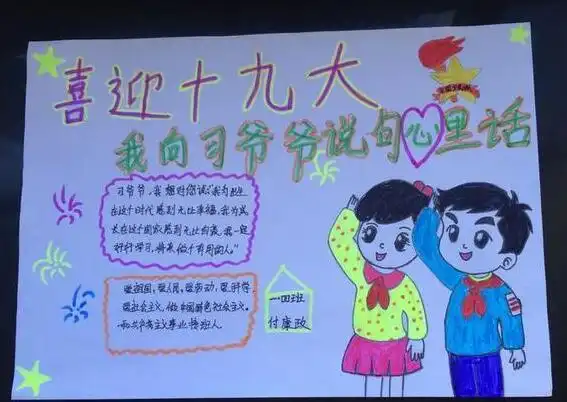 喜迎十九大
我向习爷爷说句心里话
习爷爷,我想对您说:"我为出生
在这个时代感到无比幸福,我为成
长在这个国家感到无比自豪,我一定
好好学习,将来做个有用的人。"
爱祖国,爱人民,爱劳动,爱科学,
爱社会主义,做中国特色社会主义
和共产主义事业接班人.
一四班
付康政